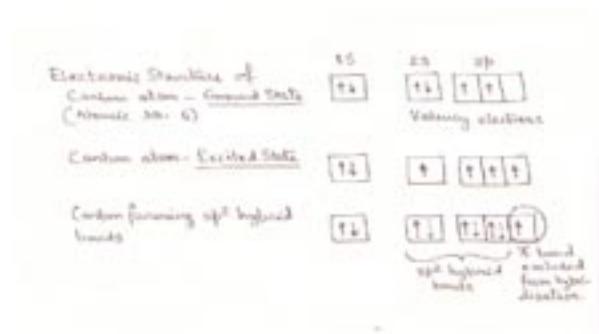 1s 2s 2p
Electronic Structure of
Carbon atom - Ground State
(Atomic no. 6)
↑↓ ↑↓ ↑ ↑
Valency electrons
Carbon atom - Excited State
↑↓ ↑ ↑ ↑ ↑
Carbon forming sp² hybrid
bonds
↑↓ ↑↓ ↑↓ ↑↓ ↑
sp² hybrid
bonds
π bond
excluded
from hybri-
disation